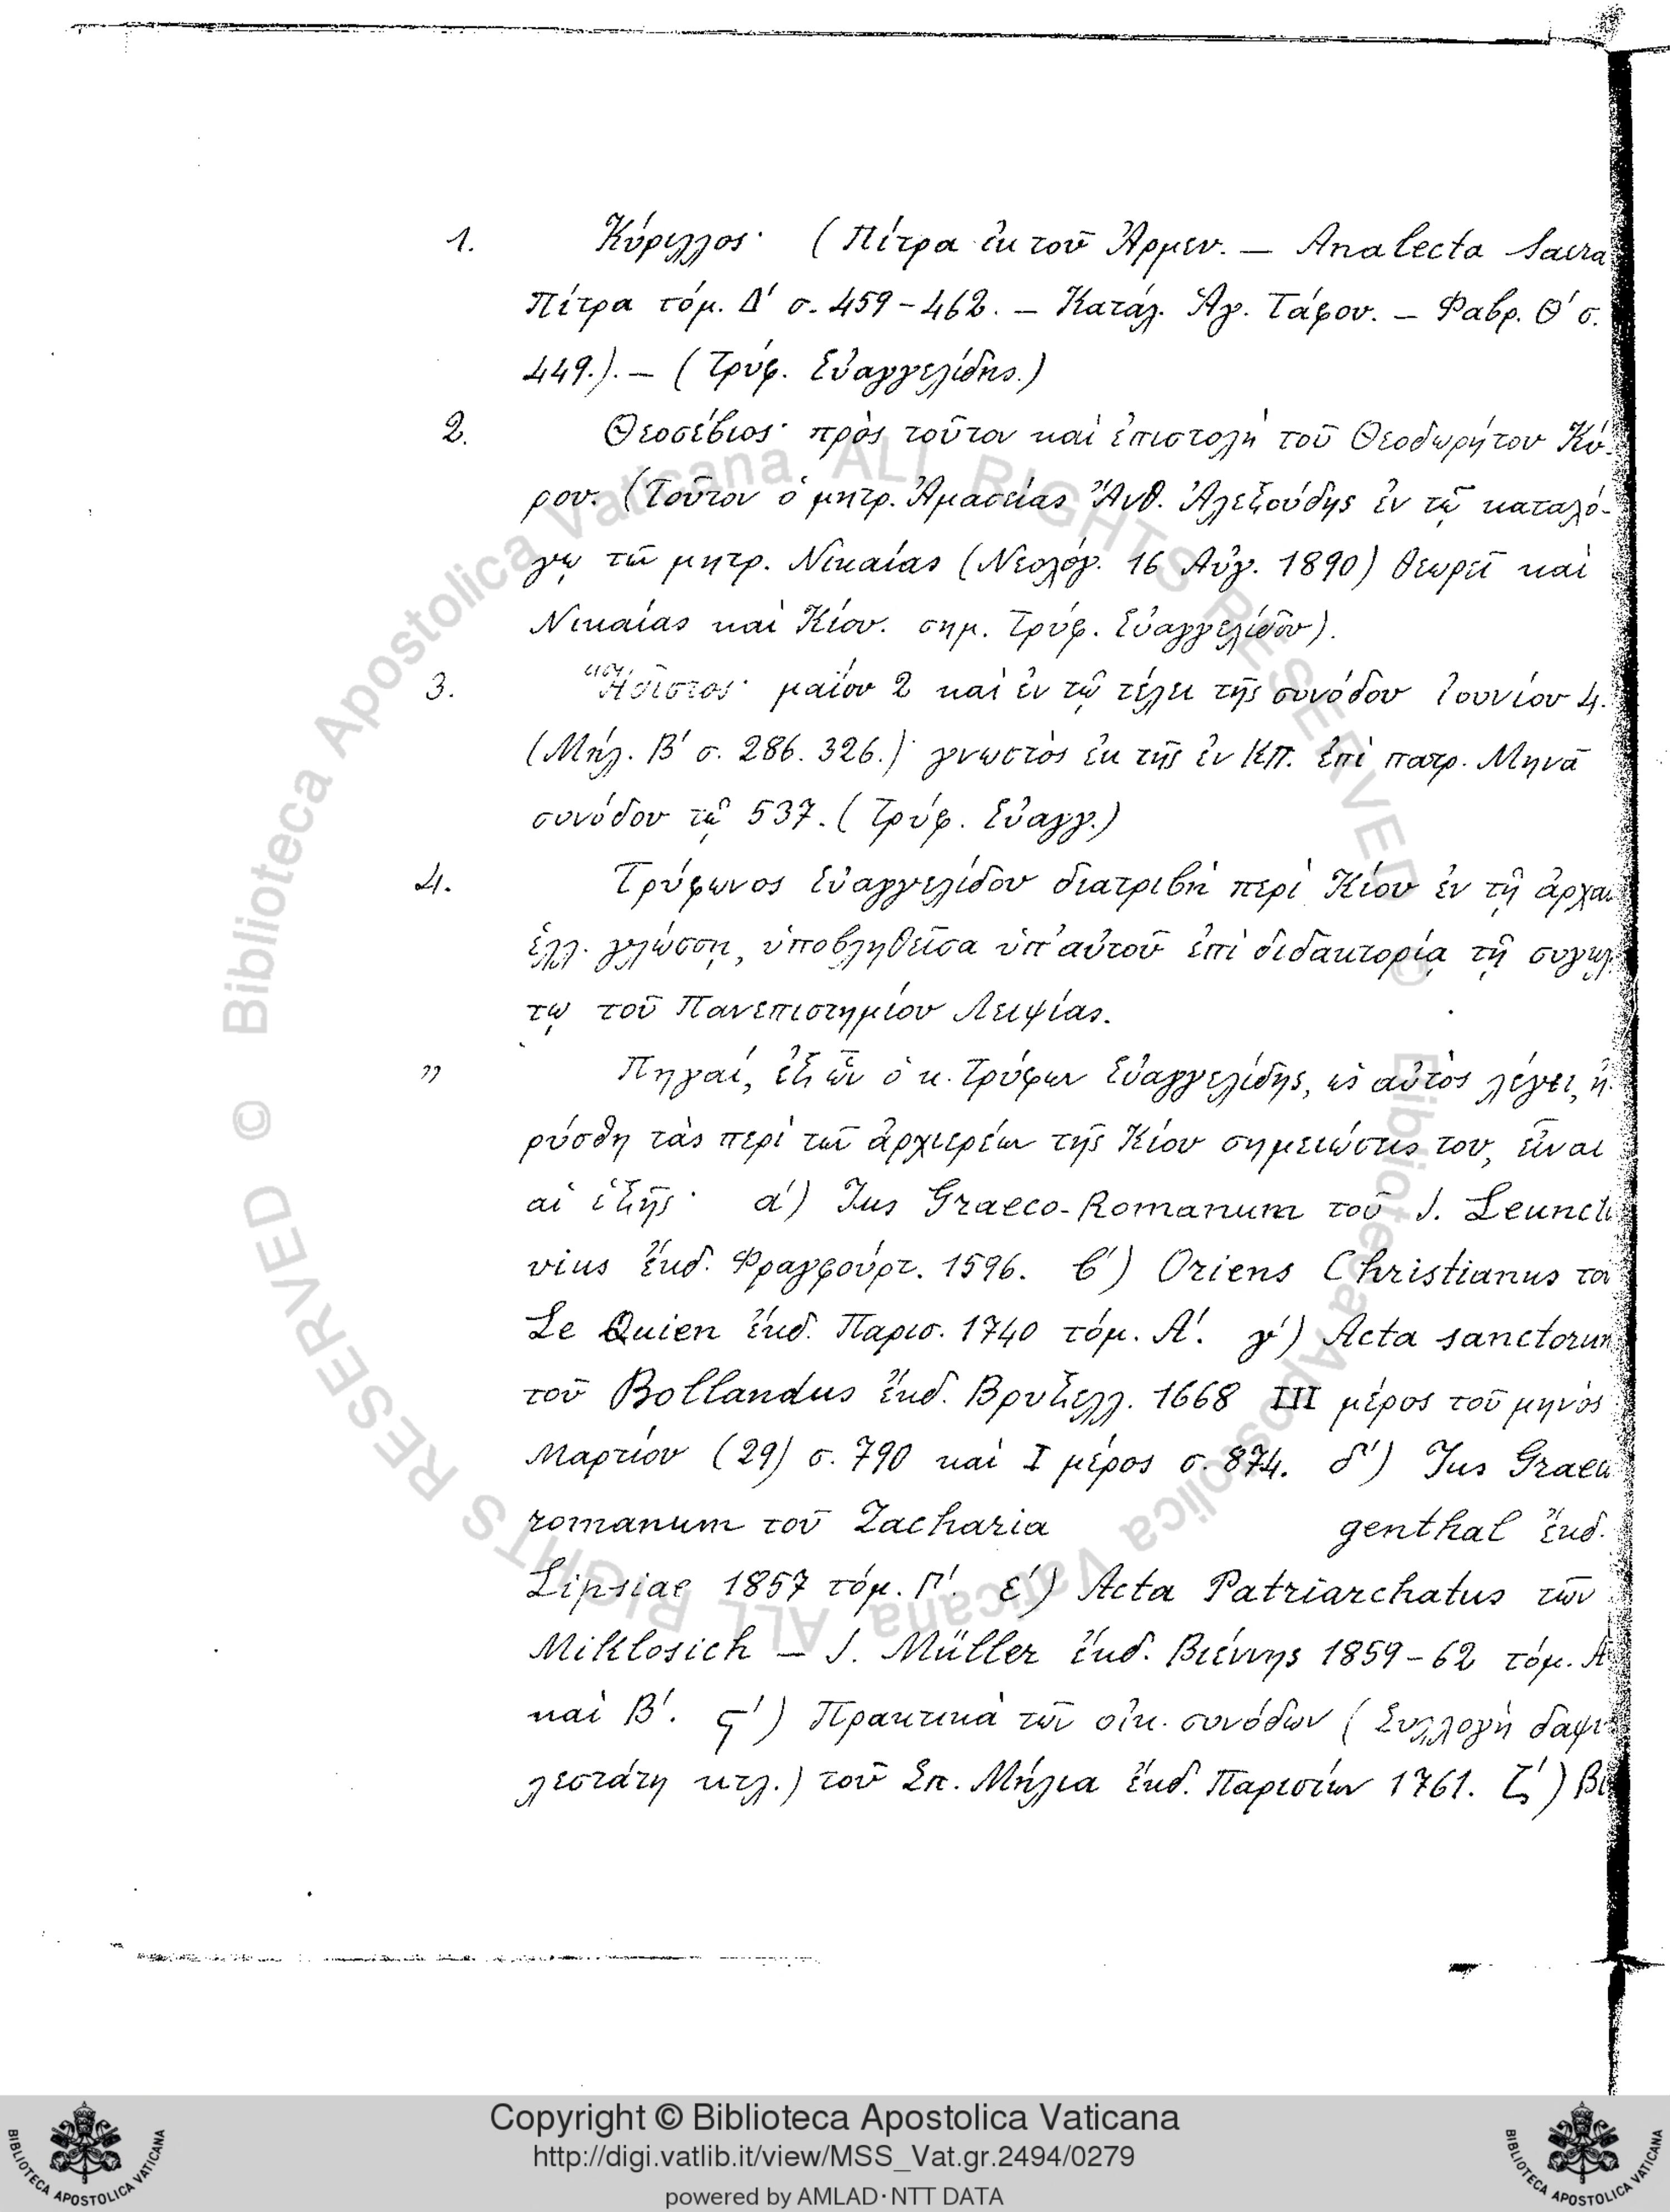 1. Κύριλλος· (Πίτρα ἐκ τοῦ Ἀρμεν. — Analecta Sacra
Πίτρα τόμ. Δ΄ σ. 459-462. — Κατάλ. Ἁγ. Τάφου. — Φαβρ. Θ΄ σ.
449.). — (Τρύφ. Εὐαγγελίδης.)
2. Θεοσέβιος· πρὸς τοῦτον καὶ ἐπιστολὴ τοῦ Θεοδωρήτου Κύ-
ρου. (Τοῦτον ὁ μητρ. Ἀμασείας Ἄνθ. Ἀλεξούδης ἐν τῷ καταλό-
γῳ τῶν μητρ. Νικαίας (Νεολόγ. 16 Αὐγ. 1890) θεωρεῖ καὶ
Νικαίας καὶ Κίου. σημ. Τρύφ. Εὐαγγελίδου).
3. Ἥδιστος· μαΐου 2 καὶ ἐν τῷ τέλει τῆς συνόδου Ἰουνίου 4.
(Μήλ. Β΄ σ. 286. 326.)· γνωστὸς ἐκ τῆς ἐν ΚΠ. ἐπὶ πατρ. Μηνᾶ
συνόδου τῷ 537. (Τρύφ. Εὐαγγ.)
4. Τρύφωνος Εὐαγγελίδου διατριβὴ περὶ Κίου ἐν τῇ ἀρχαι
ἑλλ. γλώσσῃ, ὑποβληθεῖσα ὑπ' αὐτοῦ ἐπὶ διδακτορίᾳ τῇ συγκλ
τῳ τοῦ Πανεπιστημίου Λειψίας.
" Πηγαί, ἐξ ὧν ὁ κ. Τρύφων Εὐαγγελίδης, ὡς αὐτὸς λέγει, ἠ-
ρύσθη τὰς περὶ τῶν ἀρχιερέων τῆς Κίου σημειώσεις του, εἶναι
αἱ ἑξῆς· α΄) Jus Graeco-Romanum τοῦ J. Leuncla
vius ἔκδ. Φραγφούρτ. 1596. β΄) Oriens Christianus τοῦ
Le Quien ἔκδ. Παρισ. 1740 τόμ. Α΄. γ΄) Acta sanctorum
τοῦ Bollandus ἔκδ. Βρυξελλ. 1668 III μέρος τοῦ μηνὸς
Μαρτίου (29) σ. 790 καὶ I μέρος σ. 874. δ΄) Jus Graeco
romanum τοῦ Zacharia genthal ἔκδ.
Lipsiae 1857 τόμ. Γ΄. ε΄) Acta Patriarchatus τῶν
Miklosich — J. Müller ἔκδ. Βιέννης 1859-62 τόμ. Α
καὶ Β΄. ϛ΄) Πρακτικὰ τῶν οἰκ. συνόδων (Συλλογὴ δαψι
λεστάτη κτλ.) τοῦ Σπ. Μήλια ἔκδ. Παρισίων 1761. ζ΄) Βι
© Biblioteca Apostolica Vaticana ALL RIGHTS RESERVED
© Biblioteca Apostolica Vaticana ALL RIGHTS RESERVED
Copyright © Biblioteca Apostolica Vaticana
http://digi.vatlib.it/view/MSS_Vat.gr.2494/0279
powered by AMLAD·NTT DATA
BIBLIOTECA APOSTOLICA VATICANA
BIBLIOTECA APOSTOLICA VATICANA